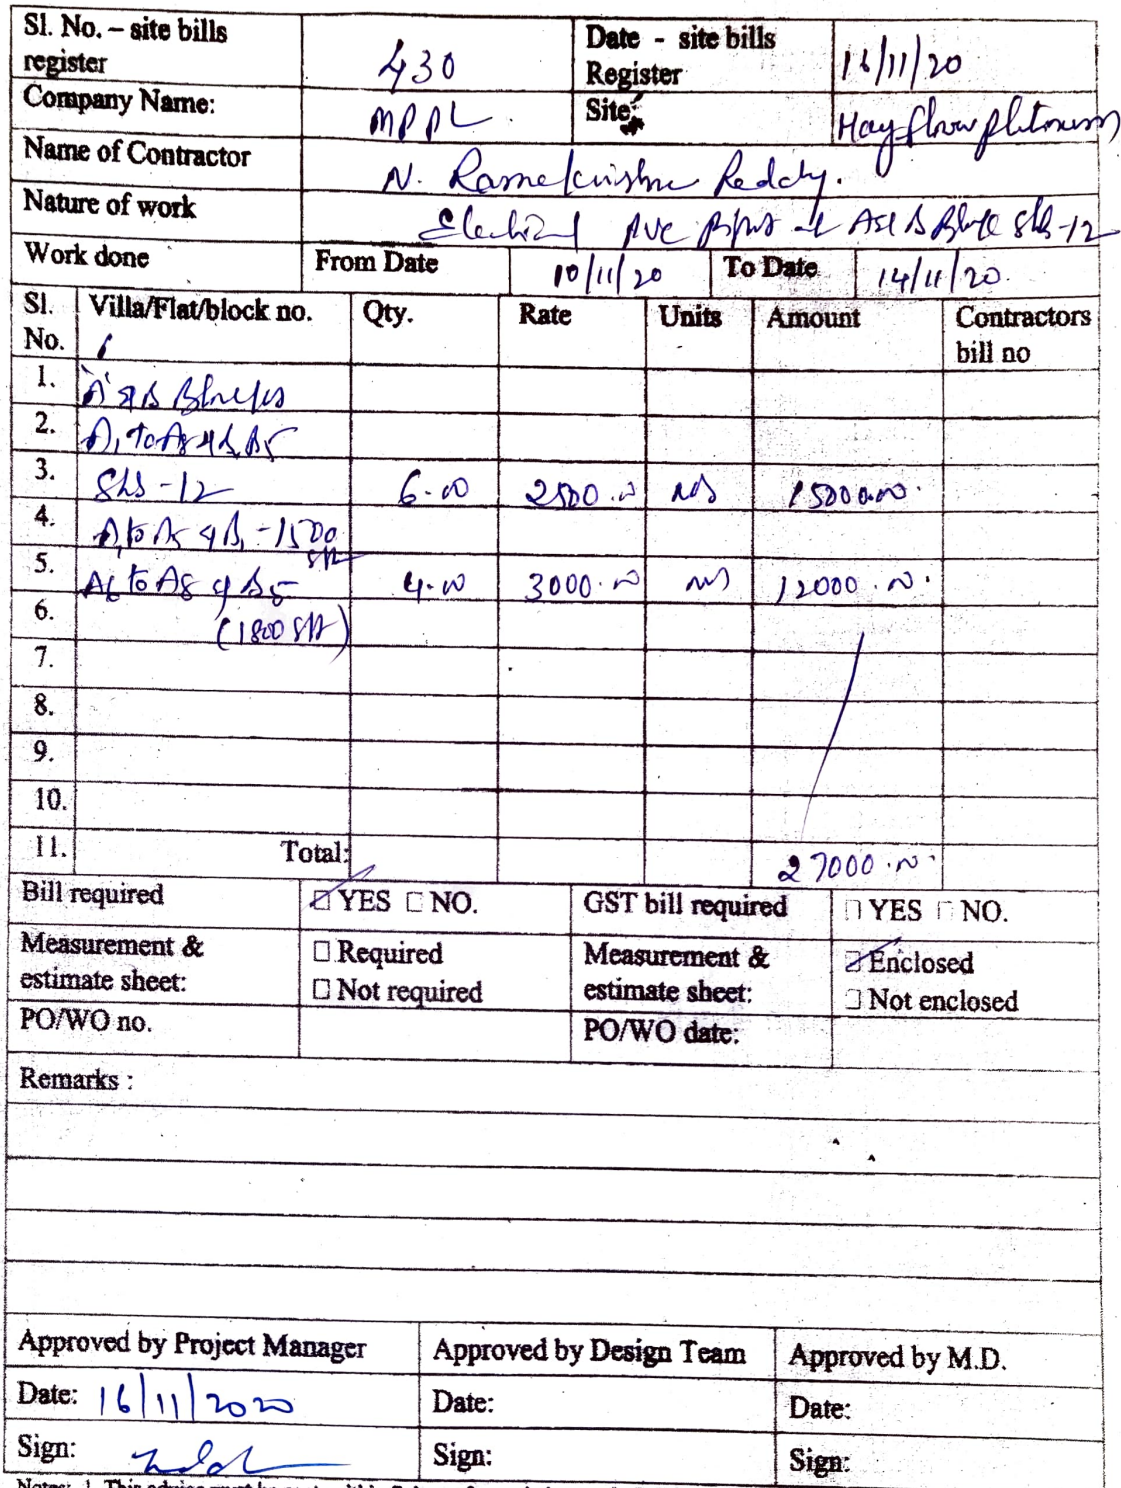 Sl. No. – site bills register 430 Date - site bills Register 16/11/20
Company Name: MPPL Site:
Name of Contractor N. Ramakrishna Reddy.
Nature of work Electrical PVC A & B Slab-12
Work done From Date 10/11/20 To Date 14/11/20.
Sl. No. Villa/Flat/block no. Qty. Rate Units Amount Contractors bill no
1. A & B Blocks
2. A1 to A8 & B5
3. Slab-12 6.00 2500.00 nos 15000.00.
4. A1 to A5 & B1 - 1500 sft
5. A6 to A8 & B5 4.00 3000.00 nos 12000.00.
6. (1800 sft)
7.
8.
9.
10.
11. Total: 27000.00.
Bill required YES NO. GST bill required YES NO.
Measurement & estimate sheet: Required Not required Measurement & estimate sheet: Enclosed Not enclosed
PO/WO no. PO/WO date:
Remarks :
Approved by Project Manager Approved by Design Team Approved by M.D.
Date: 16/11/2020 Date: Date:
Sign: Sign: Sign: